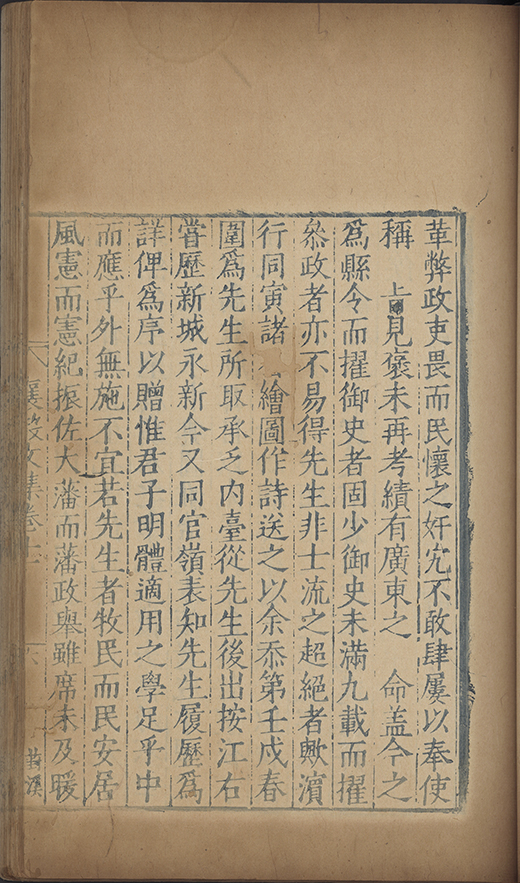 革弊政吏畏而民懷之奸宄不敢肆屢以奉使
稱 上見褒未再考績有廣東之 命盖今之
為縣令而擢御史者固少御史未滿九載而擢
叅政者亦不易得先生非士流之超絕者歟濵
行同寅諸 繪圖作詩送之以余忝第壬戍春
圍為先生所取承乏内臺從先生後出按江右
嘗歷新城永新今又同官嶺表知先生履歷為
詳俾為序以贈惟君子明體適用之學足乎中
而應乎外無施不宜若先生者牧民而民安居
風憲而憲紀振佐大藩而藩政舉雖席未及暖
襄毅文集卷十